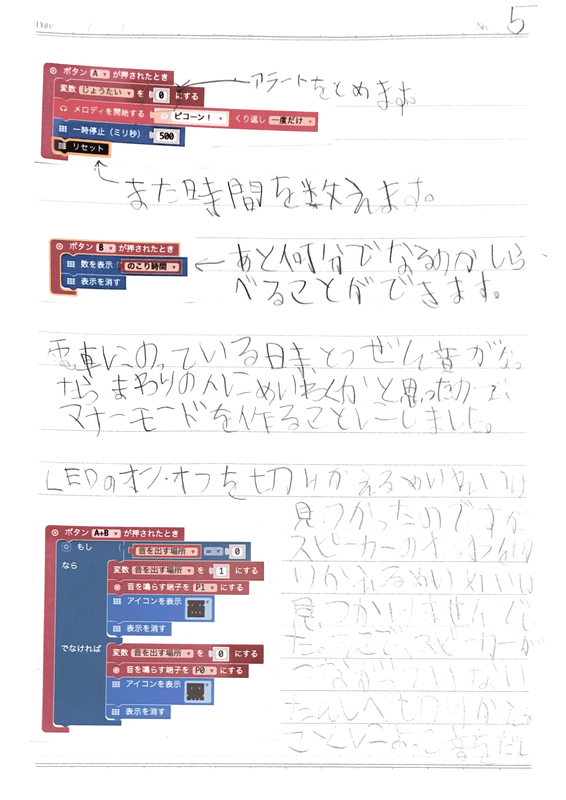 Date
No. 5
ボタン A が押されたとき
変数 じょうたい を 0 にする
アラートをとめます。
メロディを開始する ピコーン！ くり返し 一度だけ
一時停止（ミリ秒） 500
リセット
また時間を数えます。
ボタン B が押されたとき
数を表示 のこり時間
表示を消す
あと何分でなるのかしら
べることができます。
電車にのっている時とつぜん音がなっ
たらまわりの人にめいわくかと思ったので、
マナーモードを作ることにしました。
LEDのオン・オフを切りかえるめいれいは
見つかったのですが
スピーカーのオン・オフを切
りかえるめいれいは
見つかりませんでし
た。そこで、スピーカーが
つながっていない
たんしへ切りかえる
ことによって音をだし
ボタン A+B が押されたとき
もし 音を出す場所 = 0
なら
変数 音を出す場所 を 1 にする
音を鳴らす端子を P1 にする
アイコンを表示
表示を消す
でなければ
変数 音を出す場所 を 0 にする
音を鳴らす端子を P0 にする
アイコンを表示
表示を消す